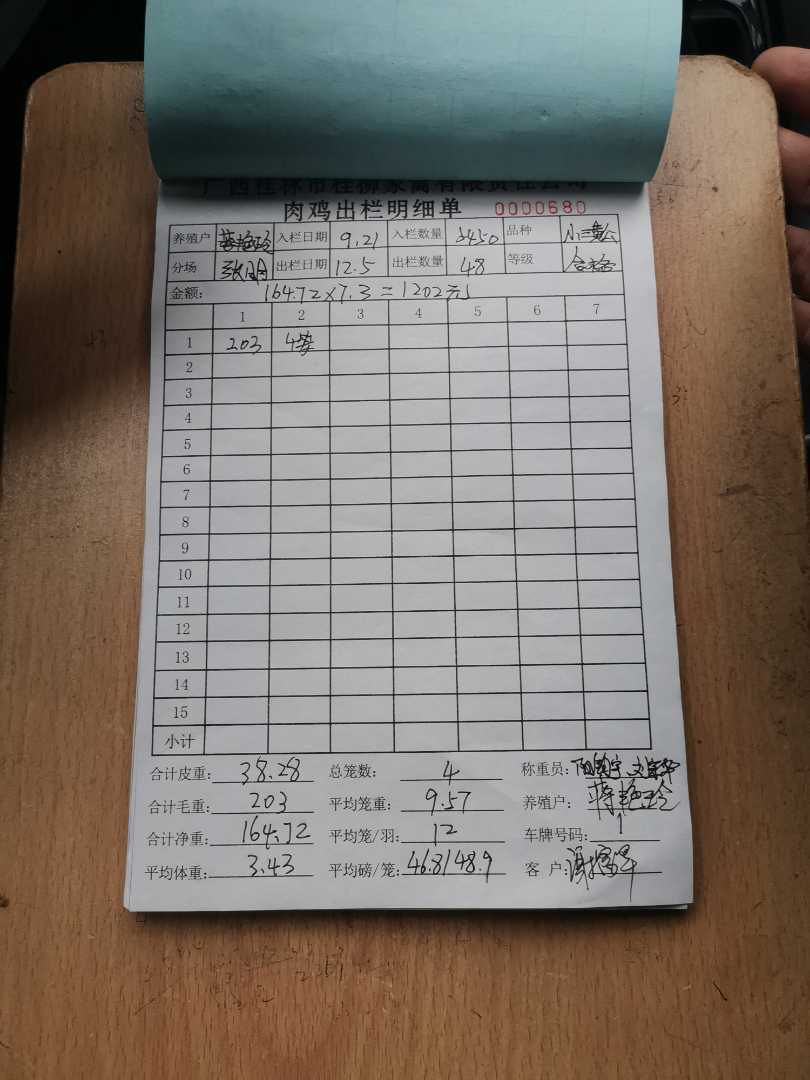 广西桂林市桂柳家禽有限责任公司
肉鸡出栏明细单 0000680
养殖户 蒋艳玲 入栏日期 9.21 入栏数量 3450 品种
分场 出栏日期 12.5 出栏数量 48 等级 合格
金额: 164.72×7.3=1202元
1 2 3 4 5 6 7
1 203 4笼
2
3
4
5
6
7
8
9
10
11
12
13
14
15
小计
合计皮重: 38.28 总笼数: 4 称重员:
合计毛重: 203 平均笼重: 9.57 养殖户: 蒋艳玲
合计净重: 164.72 平均笼/羽: 12 车牌号码:
平均体重: 3.43 平均磅/笼: 46.8/48.9 客 户: